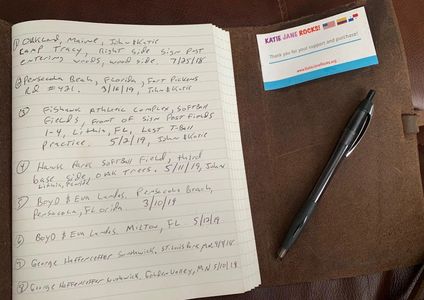 ① Oakland, Maine, John & Katie
Camp Tracy, Right side sign post
entering woods, wood side. 7/25/18.
② Pensacola Beach, Florida, Fort Pickens
Rd #421. 3/10/19, John & Katie
③ Fishhawk Athletic Complex, Softball
Fields, Front of Sign Post Fields
1-4, Lithia, FL, Last T-Ball
Practice. 5/2/19, John & Katie
④ Hawk Park Softball Field, third
base side, oak trees. 5/11/19, John
Lithia, Florida
⑤ Boyd & Eva Landos. Pensacola Beach,
Pensacola, Florida 3/10/19
⑥ Boyd & Eva Landos. Milton, FL 5/12/19
⑦ George Heffercoffer Southwick. St. Louis Park, MN 4/9/18
⑧ George Heffercoffer Southwick. Golden Valley, MN 5/10/19
KATIE JANE ROCKS!
Thank you for your support and purchase!